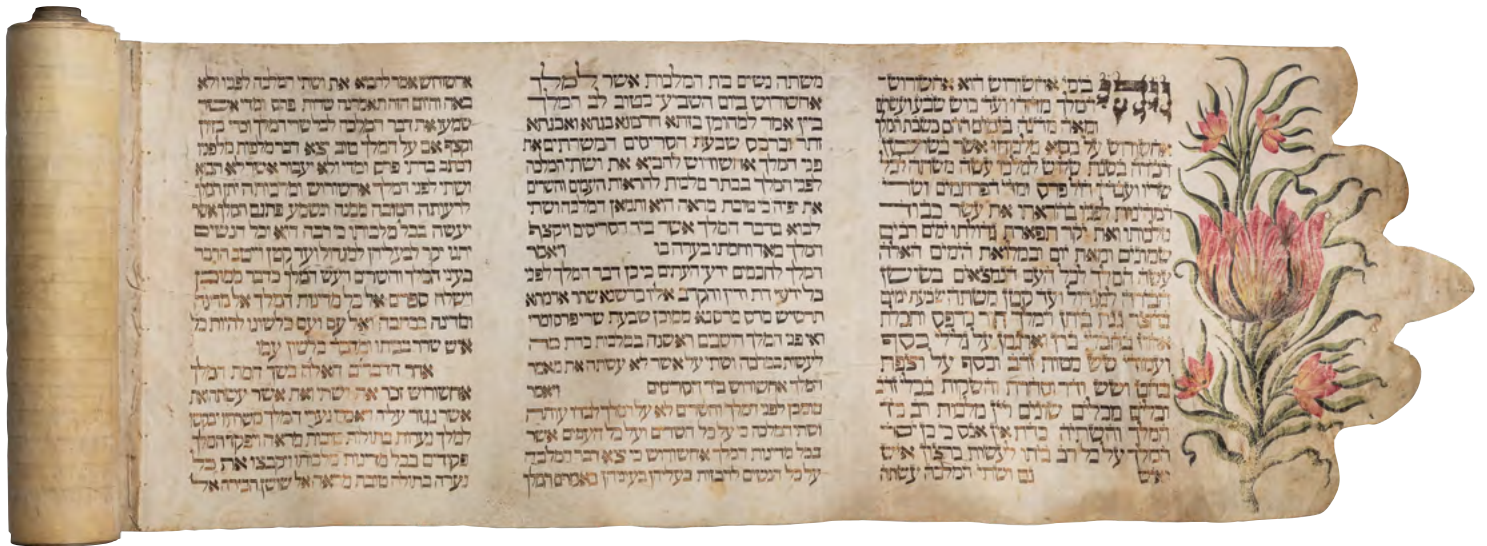 ויהי בימי אחשורוש הוא אחשורוש
המלך מהדו ועד כוש שבע ועשרים
ומאה מדינה בימים ההם כשבת המלך
אחשורוש על כסא מלכותו אשר בשושן
הבירה בשנת שלוש למלכו עשה משתה לכל
שריו ועבדיו חיל פרס ומדי הפרתמים ושרי
המדינות לפניו בהראתו את עשר כבוד
מלכותו ואת יקר תפארת גדולתו ימים רבים
שמונים ומאת יום ובמלואת הימים האלה
עשה המלך לכל העם הנמצאים בשושן
הבירה למגדול ועד קטן משתה שבעת ימים
בחצר גנת ביתן המלך חור כרפס ותכלת
אחוז בחבלי בוץ וארגמן על גלילי כסף
ועמודי שש מטות זהב וכסף על רצפת
בהט ושש ודר וסחרת והשקות בכלי זהב
וכלים מכלים שונים ויין מלכות רב כיד
המלך והשתיה כדת אין אנס כי כן יסד
המלך על כל רב ביתו לעשות כרצון איש
ואיש גם ושתי המלכה עשתה
משתה נשים בית המלכות אשר למלך
אחשורוש ביום השביעי כטוב לב המלך
ביין אמר למהומן בזתא חרבונא בגתא ואבגתא
זתר וכרכס שבעת הסריסים המשרתים את
פני המלך אחשורוש להביא את ושתי המלכה
לפני המלך בכתר מלכות להראות העמים והשרים
את יפיה כי טובת מראה היא ותמאן המלכה ושתי
לבוא בדבר המלך אשר ביד הסריסים ויקצף
המלך מאד וחמתו בערה בו ויאמר
המלך לחכמים ידעי העתים כי כן דבר המלך לפני
כל ידעי דת ודין והקרב אליו כרשנא שתר אדמתא
תרשיש מרס מרסנא ממוכן שבעת שרי פרס ומדי
ראי פני המלך הישבים ראשנה במלכות כדת מה
לעשות במלכה ושתי על אשר לא עשתה את מאמר
המלך אחשורוש ביד הסריסים ויאמר
מומכן לפני המלך והשרים לא על המלך לבדו עותה
ושתי המלכה כי על כל השרים ועל כל העמים אשר
בכל מדינות המלך אחשורוש כי יצא דבר המלכה
על כל הנשים להבזות בעליהן בעיניהן באמרם המלך
אחשורוש אמר להביא את ושתי המלכה לפניו ולא
באה והיום הזה תאמרנה שרות פרס ומדי אשר
שמעו את דבר המלכה לכל שרי המלך וכדי בזיון
וקצף אם על המלך טוב יצא דבר מלכות מלפניו
ויכתב בדתי פרס ומדי ולא יעבור אשר לא תבוא
ושתי לפני המלך אחשורוש ומלכותה יתן המלך
לרעותה הטובה ממנה ונשמע פתגם המלך אשר
יעשה בכל מלכותו כי רבה היא וכל הנשים
יתנו יקר לבעליהן למגדול ועד קטן וייטב הדבר
בעיני המלך והשרים ויעש המלך כדבר ממוכן
וישלח ספרים אל כל מדינות המלך אל מדינה
ומדינה ככתבה ואל עם ועם כלשונו להיות כל
איש שרר בביתו ומדבר כלשון עמו
אחר הדברים האלה כשך חמת המלך
אחשורוש זכר את ושתי ואת אשר עשתה ואת
אשר נגזר עליה ויאמרו נערי המלך משרתיו יבקשו
למלך נערות בתולות טובות מראה ויפקד המלך
פקידים בכל מדינות מלכותו ויקבצו את כל
נערה בתולה טובת מראה אל שושן הבירה אל